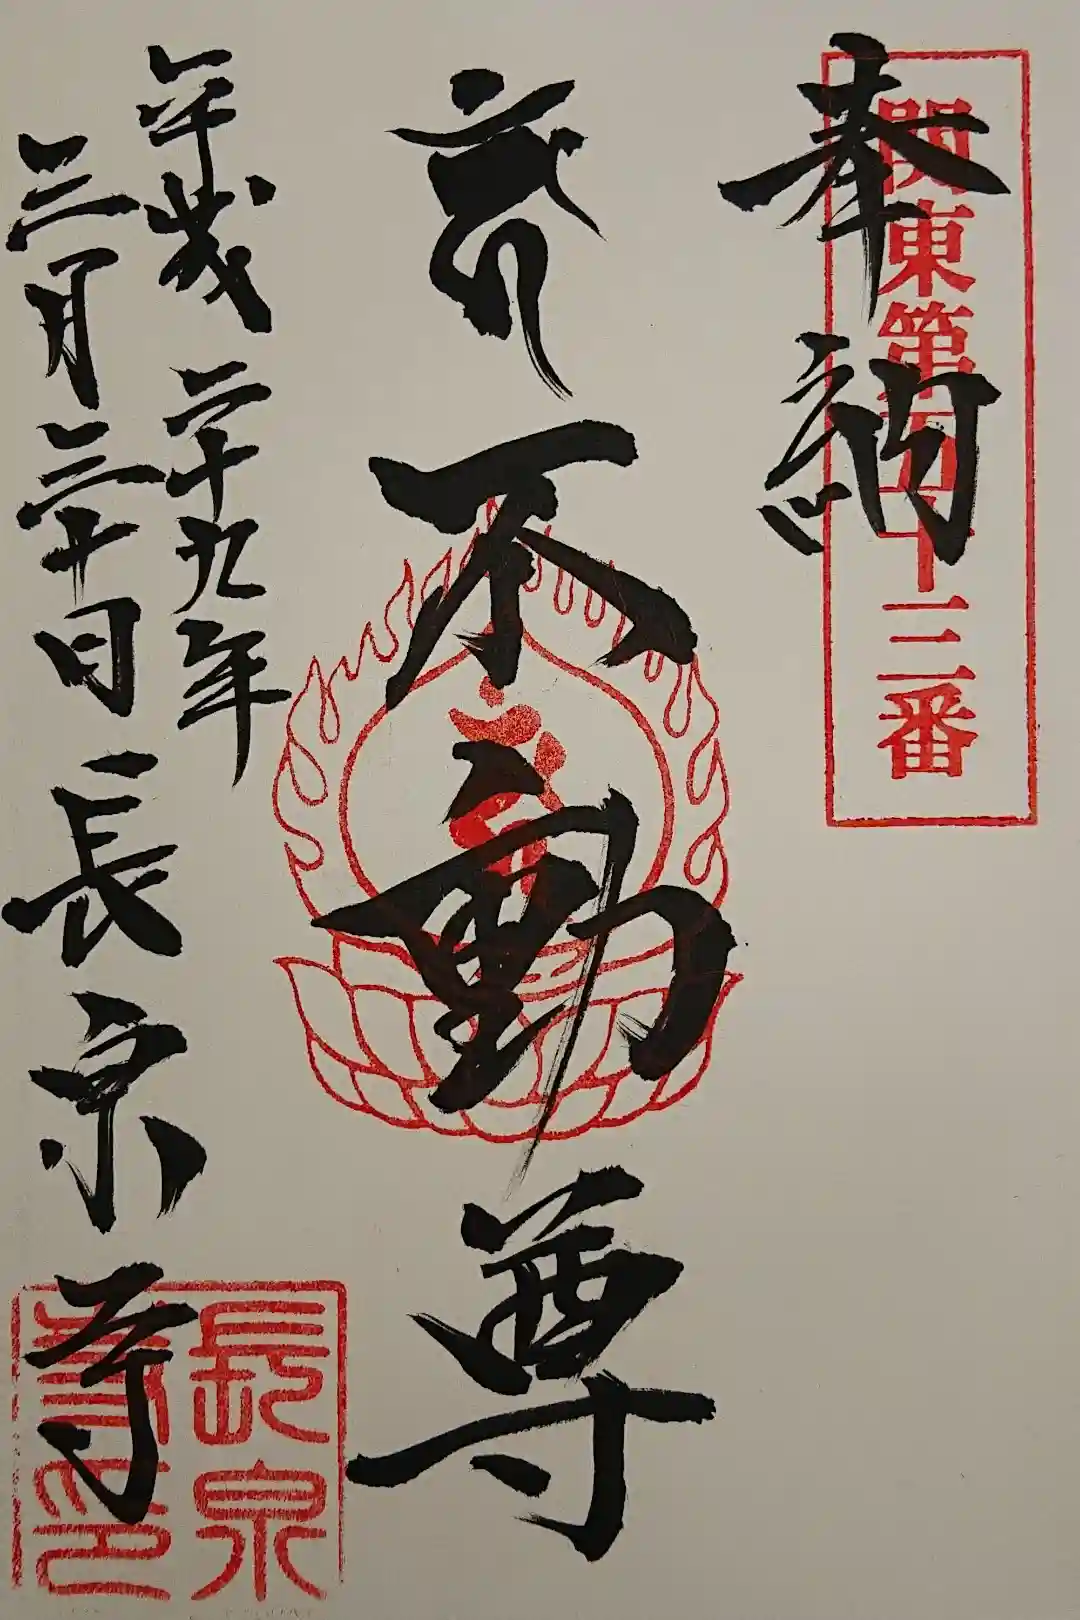 奉納
関東第五十三番
不動尊
平成二十九年
三月三十日 長泉寺
長泉
寺印